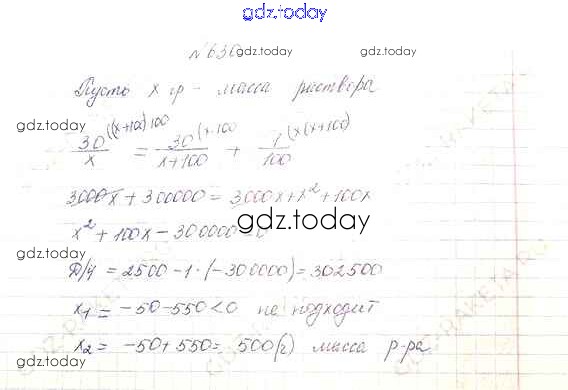 gdz.today
№630
gdz.today gdz.today
Пусть x гр - масса раствора
gdz.today
30/x ((x+100)100 = 30/(x+100) (x·100 + 1/100 (x(x+100)
3000x + 300000 = 3000x + x² + 100x
gdz.today
x² + 100x - 300000 = 0
gdz.today
Д/4 = 2500 - 1·(-300000) = 302500
x₁ = -50 - 550 < 0 не подходит
x₂ = -50 + 550 = 500 (г) масса р-ра
gdz.today gdz.today